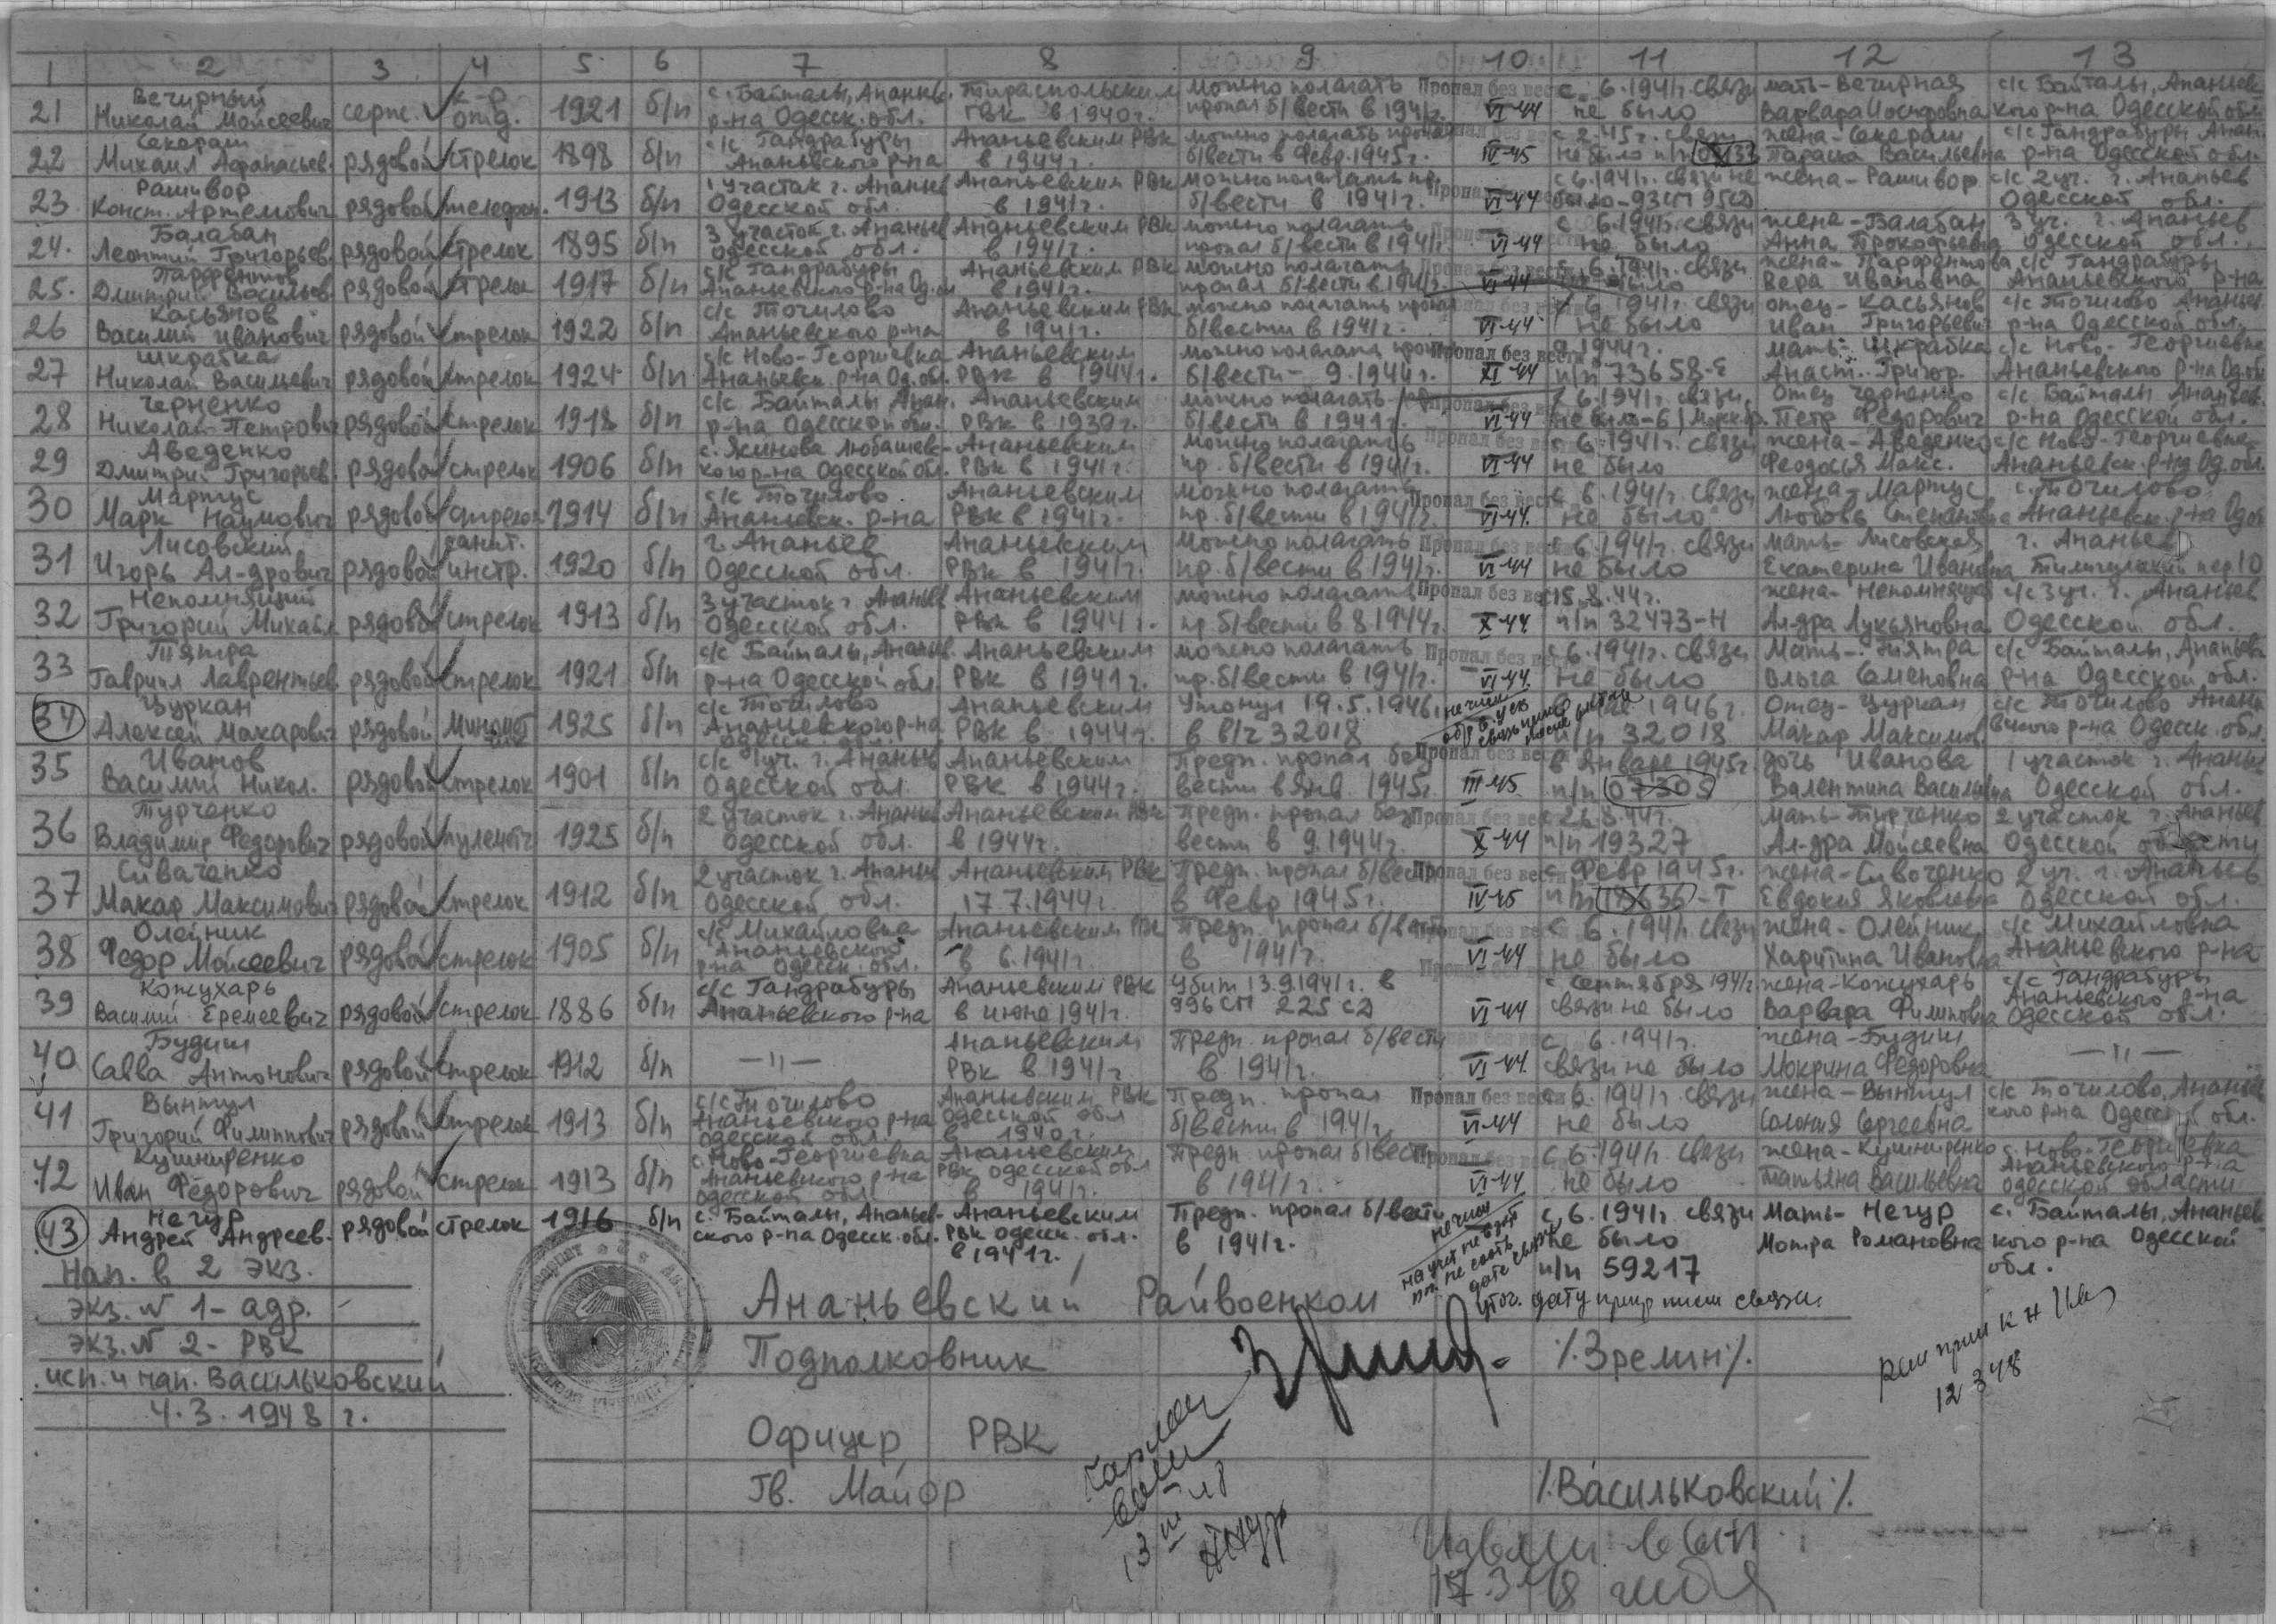 1 2 3 4 5 6 7 8 9 10 11 12 13
21 Вечирный Николай Моисеевич серж. к-р отд. 1921 б/п с. Байталы, Ананьев. р-на Одесск. обл. Тираспольским ГВК в 1940г. можно полагать пропал б/вести в 1941г. Пропал без вести VI-44 с 6.1941г. связи не было мать-Вечирная Варвара Иосифовна с/с Байталы, Ананьев кого р-на Одесской обл
22 Михаил Афанасьев. рядовой стрелок 1898 б/п с/с Гандрабуры Ананьевского р-на Ананьевским РВК в 1944г. можно полагать пропал б/вести в Февр. 1945г. IV-45 с 2.45г. связи не было п/п жена- Параска Васильевна с/с Гандрабуры Анан. р-на Одесской обл.
23 Рашивор Конст. Артемович рядовой телефон. 1913 б/п 1 участок г. Ананьев Одесской обл. Ананьевским РВК в 1941г. можно полагать пр. б/вести в 1941г. Пропал без вести VI-44 с 6.1941г. связи не было-93сп 95сд жена-Рашивор с/с 2 уч. г. Ананьев Одесской обл.
24. Балабан Леонтий Григорьев. рядовой стрелок 1895 б/п 3 участок г. Ананьев Одесской обл. Ананьевским РВК в 1941г. можно полагать пропал б/вести в 1941г. VI-44 с 6.1941г. связи не было жена-Балабан Анна Прокофьевна 3 уч. г. Ананьев Одесской обл.
25. Парфентов Дмитрий Васильев. рядовой стрелок 1917 б/п с/с Гандрабуры Ананьевского р-на Од. Ананьевским РВК в 1941г. можно полагать пропал б/вести в 1941г. VI-44 6.1941г. связи было жена-Парфентова Вера Ивановна с/с Гандрабуры Ананьевского р-на
26 Касьянов Василий Иванович рядовой стрелок 1922 б/п с/с Точилово Ананьевского р-на Ананьевским РВК в 1941г. можно полагать пропал б/вести в 1941г. VI-44 6.1941г. связи не было отец-Касьянов Иван Григорьевич с/с Точилово Ананьев. р-на Одесской обл.
27 Шкрабка Николай Васильевич рядовой стрелок 1924 б/п с/с Ново-Георгиевка Ананьевск. р-на Од. обл. Ананьевским РВК в 1944г. можно полагать пропал б/вести - 9.1944г. Пропал без вести XI-44 1944г. п/п 73658-Е мать-Шкрабка Анаст. Григор. с/с Ново-Георгиевка Ананьевского р-на Од. обл
28 Черненко Николай Петрович рядовой стрелок 1918 б/п с/с Байталы Анан. р-на Одесской обл. Ананьевским РВК в 1939г. можно полагать б/вести в 1941г. Пропал без вести VI-44 с 6.1941г. связи не было отец Черненко Петр Федорович с/с Байталы Ананьев. р-на Одесской обл.
29 Аведенко Дмитрий Григорьев. рядовой стрелок 1906 б/п с. Ясинова Любашев-кого р-на Одесской обл. Ананьевским РВК в 1941г. можно полагать пр. б/вести в 1941г. VI-44 с 6.1941г. связи не было жена-Аведенко Феодосья Макс. с/с Ново-Георгиевка Ананьевск. р-на Од. обл.
30 Мартус Марк Наумович рядовой стрелок 1914 б/п с/с Точилово Ананьевск. р-на Ананьевским РВК в 1941г. можно полагать пр. б/вести в 1941г. Пропал без вести VI-44. с 6.1941г. связи не было жена-Мартус Любовь Степановна с. Точилово Ананьевск. р-на Од. об
31 Лисовский Игорь Ал-дрович рядовой санит. инстр. 1920 б/п г. Ананьев Одесской обл. Ананьевским РВК в 1941г. можно полагать пр. б/вести в 1941г. Пропал без вести VI-44 с 6.1941г. связи не было мать-Лисовская Екатерина Ивановна г. Ананьев Тилигульский пер. 10
32 Непомнящий Григорий Михайл. рядовой стрелок 1913 б/п 3 участок г. Ананьев Одесской обл. Ананьевским РВК в 1944г. можно полагать пр. б/вести в 8.1944г. Пропал без вести X-44 с 15.8.44г. п/п 32473-Н жена-Непомнящая Ал-дра Лукьяновна с/с 3 уч. г. Ананьев Одесской обл.
33 Тяптра Гавриил Лаврентьев рядовой стрелок 1921 б/п с/с Байталы, Ананьев. р-на Одесской обл. Ананьевским РВК в 1941г. можно полагать пр. б/вести в 1941г. Пропал без вести VI-44. с 6.1941г. связи не было Мать-Тяптра Ольга Семеновна с/с Байталы, Ананьев р-на Одесской обл.
34 Цуркан Алексей Макарович рядовой Миномётчик 1925 б/п с/с Точилово Ананьевского р-на Ананьевским РВК в 1944г. Утонул 19.5.1946г. в в/ч 32018 1946г. п/п 32018 Отец-Цуркан Макар Максимов. с/с Точилово Анань вского р-на Одесск. обл.
35 Иванов Василий Никол. рядовой стрелок 1901 б/п с/с 1 уч. г. Ананьев Одесской обл. Ананьевским РВК в 1944г. Предп. пропал без вести в янв. 1945г. Пропал без вести III-45 в Январе 1945г. п/п 07305 дочь Иванова Валентина Васильевна 1 участок г. Ананьев Одесской обл.
36 Турченко Владимир Федорович рядовой пулемётч 1925 б/п 2 участок г. Ананьев Одесской обл. Ананьевским РВК в 1944г. Предп. пропал без вести в 9.1944г. Пропал без вести X-44 с 26.8.44г. п/п 19327 мать-Турченко Ал-дра Моисеевна 2 участок г. Ананьев Одесской области
37 Сиваченко Макар Максимович рядовой стрелок 1912 б/п 2 участок г. Ананьев Одесской обл. Ананьевским РВК 17.7.1944г. Предп. пропал б/вести в Февр 1945г. Пропал без вести IV-45 с Февр 1945г. п/п -Т жена-Сивоченко Евдокия Яковлевна 2 уч. г. Ананьев Одесской обл.
38 Олейник Федор Моисеевич рядовой стрелок 1905 б/п с/с Михайловка Ананьевского р-на Одесск. обл. Ананьевским РВК в 6.1941г. Предп. пропал б/вести в 1941г. VI-44 с 6.1941г. связи не было жена-Олейник Харитина Ивановна с/с Михайловка Ананьевского р-на
39 Кожухарь Василий Еремеевич рядовой стрелок 1886 б/п с/с Гандрабуры Ананьевского р-на Ананьевским РВК в июне 1941г. Убит 13.9.1941г. в 996 сп 225 сд VI-44 с сентября 1941г. связи не было жена-Кожухарь Варвара Филиповна с/с Гандрабуры Ананьевского р-на Одесской обл.
40 Будиш Савва Антонович рядовой стрелок 1912 б/п —"— Ананьевским РВК в 1941г. Предп. пропал б/вести в 1941г. VI-44. с 6.1941г. связи не было жена-Будиш Мокрина Федоровна —"—
41 Вынтул Григорий Филиппович рядовой стрелок 1913 б/п с/с Точилово Ананьевского р-на Одесской обл. Ананьевским РВК Одесской обл в 1940г. Предп. пропал б/вести в 1941г. Пропал без вести VI-44 с 6.1941г. связи не было жена-Вынтул Солония Сергеевна с/с Точилово, Ананьев кого р-на Одесской обл.
42 Кушниренко Иван Фёдорович рядовой стрелок 1913 б/п с. Ново-Георгиевка Ананьевского р-на Одесской обл. Ананьевским РВК Одесской обл в 1941г. Предп. пропал б/вести в 1941г. Пропал без вести VI-44 с 6.1941г. связи не было жена-Кушниренко Татьяна Васильевна с. Ново-Георгиевка Ананьевского р-на Одесской области
43 Нечур Андрей Андреев. рядовой стрелок 1916 б/п с. Байталы, Ананьев-ского р-на Одесск. обл. Ананьевским РВК Одесск. обл. в 1941г. Предп. пропал б/вести в 1941г. с 6.1941г. связи не было п/п 59217 Мать-Нечур Мотра Романовна с. Байталы, Ананьев кого р-на Одесской обл.
Нап. в 2 экз.
экз. № 1 - адр.
экз. № 2 - РВК
исп. и нап. Васильковский
4.3.1948 г.
Ананьевский Райвоенком
Подполковник /.Зремин/.
Офицер РВК
Гв. Майор /.Васильковский/.
12 3 48